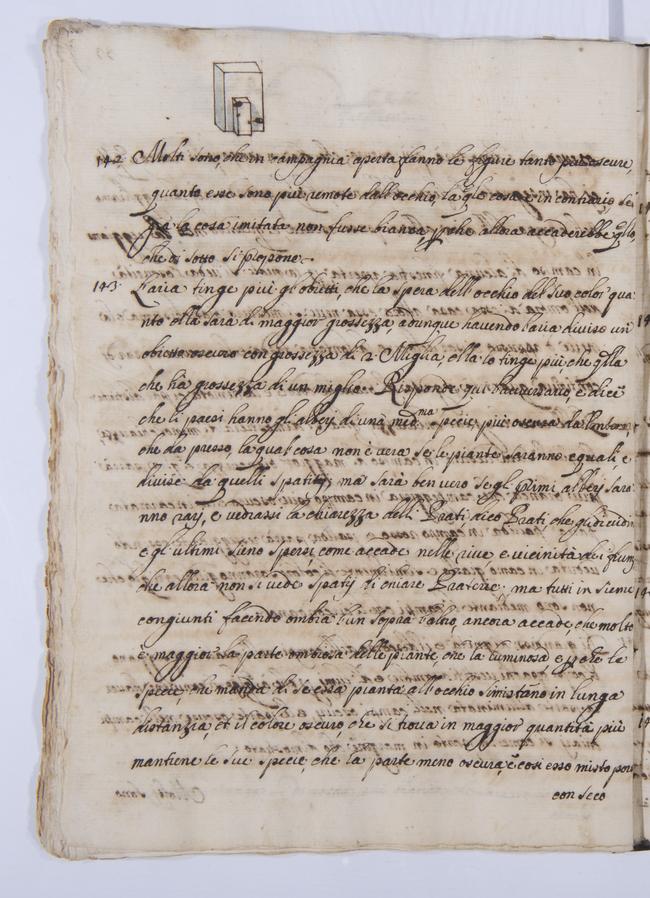 142 Molti sono, che in campagnia aperta fanno le figure tanto più oscure,
quanto esse sono più remote dall'occhio, la qle cosa è in contrario se
già la cosa imitata non fusse bianca, pche allora accaderebbe qllo,
che di sotto si propone.
143. L'aria tinge più gl'obietti, che la spera dell'occhio del suo color qua
nto ella sarà di maggior grossezza adunque havendo l'aria diviso un'
obietto oscuro con grossezza di 2 Miglia, ella lo tinge più, che qlla
che hà grossezza di un miglio. Risponde qui l'aversario, e dice
che li paesi hanno gl'alberi d'una medma specie più oscura da
che da presso, la qual cosa non è vera se le piante saranno equali, e
divise da quelli spatij, ma sarà ben vero se gl primi alberj sara
nno rarj, e vedrassi la chiarezza delli Prati dico Prati che gli dividono
e gl'ultimi sieno spersi, come accade nelle rive e vicinità dei fiumi
che allora non si vede spatij di chiare Praterie, ma tutti in sieme
congiunti facendo ombra l'un sopra l'altro, ancora accade, che molto
è maggior la parte ombrosa delle piante, che la luminosa e p le
specie, che manda di se essa pianta all'occhio si mistano in lunga
distanzia, et il colore oscuro, che si trova in maggior quantità più
mantiene le sue specie, che la parte meno oscura, e così esso misto por
con seco